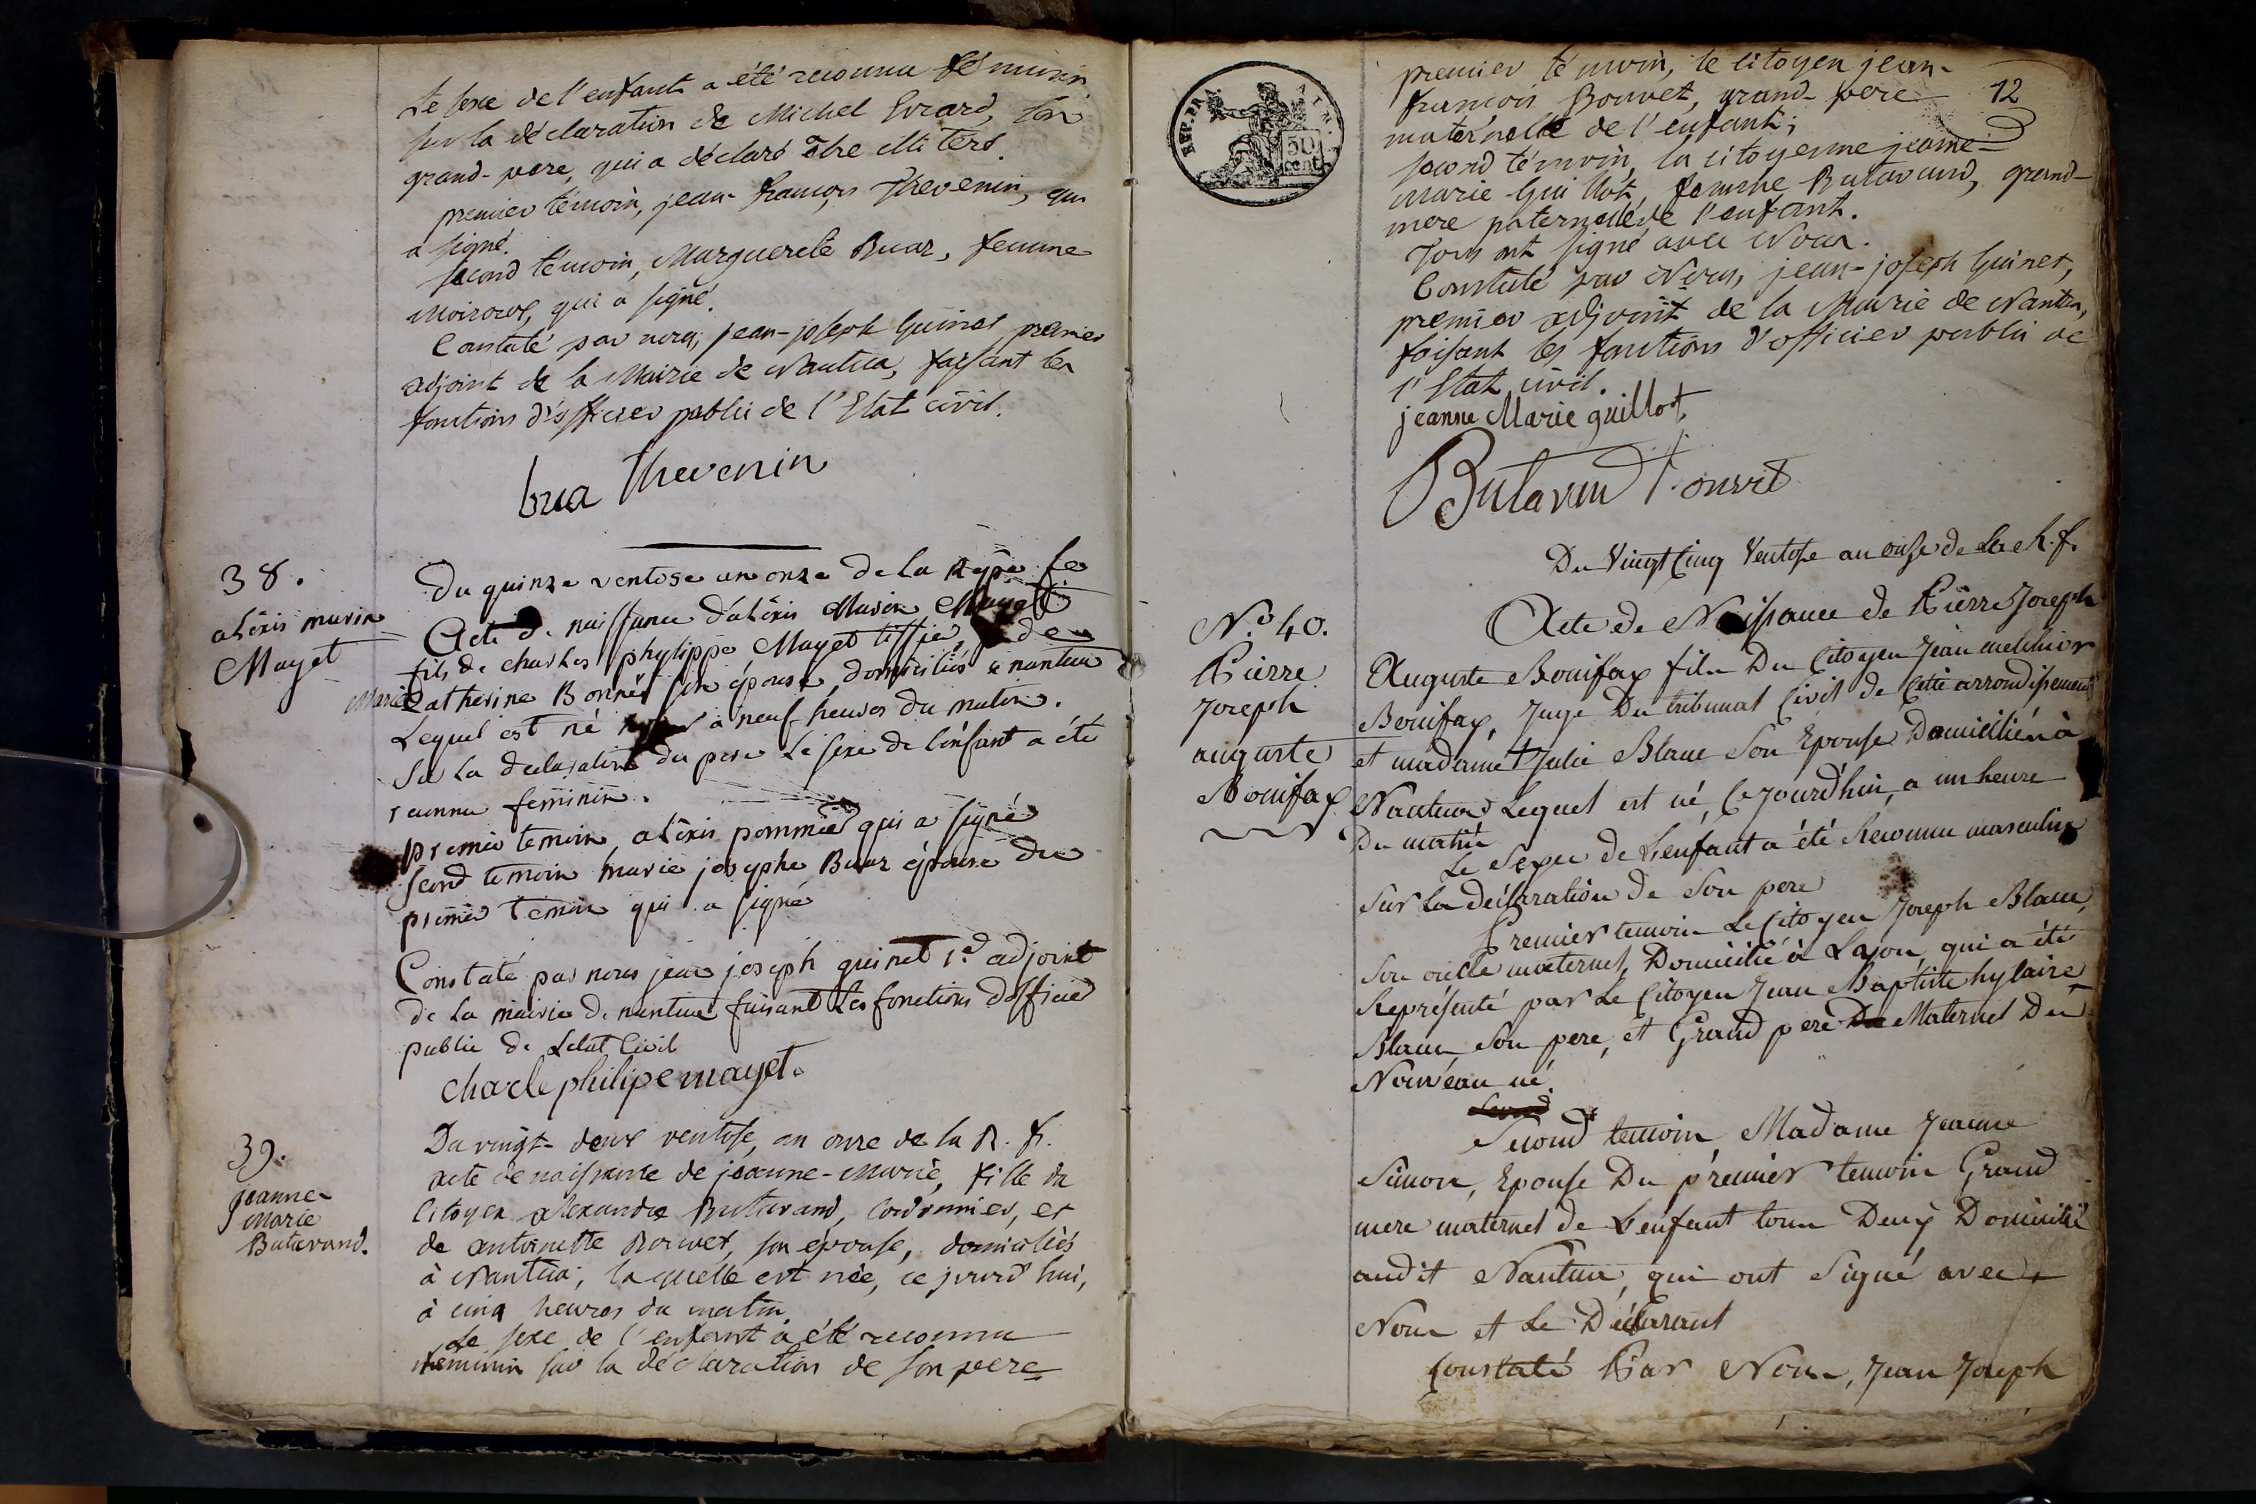 Le sexe de l'enfant a été reconnu féminin
sur la déclaration de Michel Evrard, son
grand-pere, qui a déclaré être illiteré.
premier témoin, jean-françois Thevenin, qui
a signé.
second témoin, Marguerite Buaz, femme
qui a signé.
Constaté par nous, jean-joseph Guinet premier
adjoint de la Mairie de Nantua, faisant les
fonctions d'officier public de l'Etat civil.
Thevenin
38.
alexis marie
Mayet
Du quinze ventose an onze de la Repe. fe
Acte de naissance d'alexis Marie Mayet
fils de charles phylippe Mayet tissier de
Marie Catherine Bonnet son épouse domiciliés a nantua
Lequel est né a neuf heures du matin.
Sur la declaration du pere Le sexe de l'enfant a été
reconnu feminin.
premier temoin alexis pommier qui a signé
second temoin marie josephe Buaz épouse du
premier temoin qui a signé
Constaté par nous jean joseph guinet 1.er adjoint
de la mairie de nantua faisant les fonctions d'officier
public de Letat Civil
charle philipe mayet.
39.
Jeanne-
Marie
Butavand.
Du vingt-deux ventose, an onze de la R. fr.
acte de naissance de jeanne-Marie, fille du
Citoyen alexandre Butavand, Cordonnier, et
de antoinette Bouvet, son épouse, domiciliés
à Nantua; laquelle est née, ce jourd'hui,
à cinq heures du matin.
Le sexe de l'enfant a été reconnu
féminin sur la déclaration de son pere
REP. FRA.
50
cent
12
premier témoin, le citoyen jean-
francois Bouvet, grand-pere
maternelle de l'enfant;
second témoin, la citoyenne jeanne-
marie Guillot, femme Butavand, grand-
mere paternelle de l'enfant.
Tous ont signé avec Nous.
Constaté par Nous, jean-joseph Guinet,
premier adjoint de la Mairie de Nantua,
faisant les fonctions d'officier public de
l'Etat civil.
jeanne Marie guillot
Butavan Bouvet
Du Vingt Cinq Ventose an onze de La R. f.
N.o 40.
Pierre
Joseph
auguste
Bonifax
Acte de Naissance de Pierre Joseph
Auguste Bonifax fils Du Citoyen Jean melchior
Bonifax, Juge Du tribunal Civil de Cette arrondissement
et madame Julie Blanc Son Epouse Domiciliés à
Nantua Lequel est né, Ce jourd'hui, a un heure
Du matin
Le Sexe de L'enfant a été Reconnu masculin
Sur La declaration de Son pere
Premier temoin Le Citoyen Joseph Blanc,
Son oncle maternel, Domicilié à Layon, qui a été
Représenté par Le Citoyen Jean Baptiste hylaire
Blanc, Son pere, et Grand pere De Maternel Du
Nouveau né.
Second
Second temoin Madame Jeanne
Simon, Epouse Du premier temoin Grand
mere maternel de L'enfant tous Deux Domicilié
audit Nantua, qui ont Signé avec
Nous et Le Déclarant
Constaté Par Nous, Jean Joseph